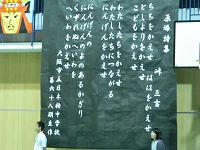 原爆詩集　峠　三吉
ちちをかえせ　ははをかえせ
としよりをかえせ
こどもをかえせ
わたしをかえせ　わたしにつながる
にんげんをかえせ
にんげんの　にんげんのよのあるかぎり
くずれぬへいわを
へいわをかえせ
大阪市立日本橋中学校
第六十八期生作